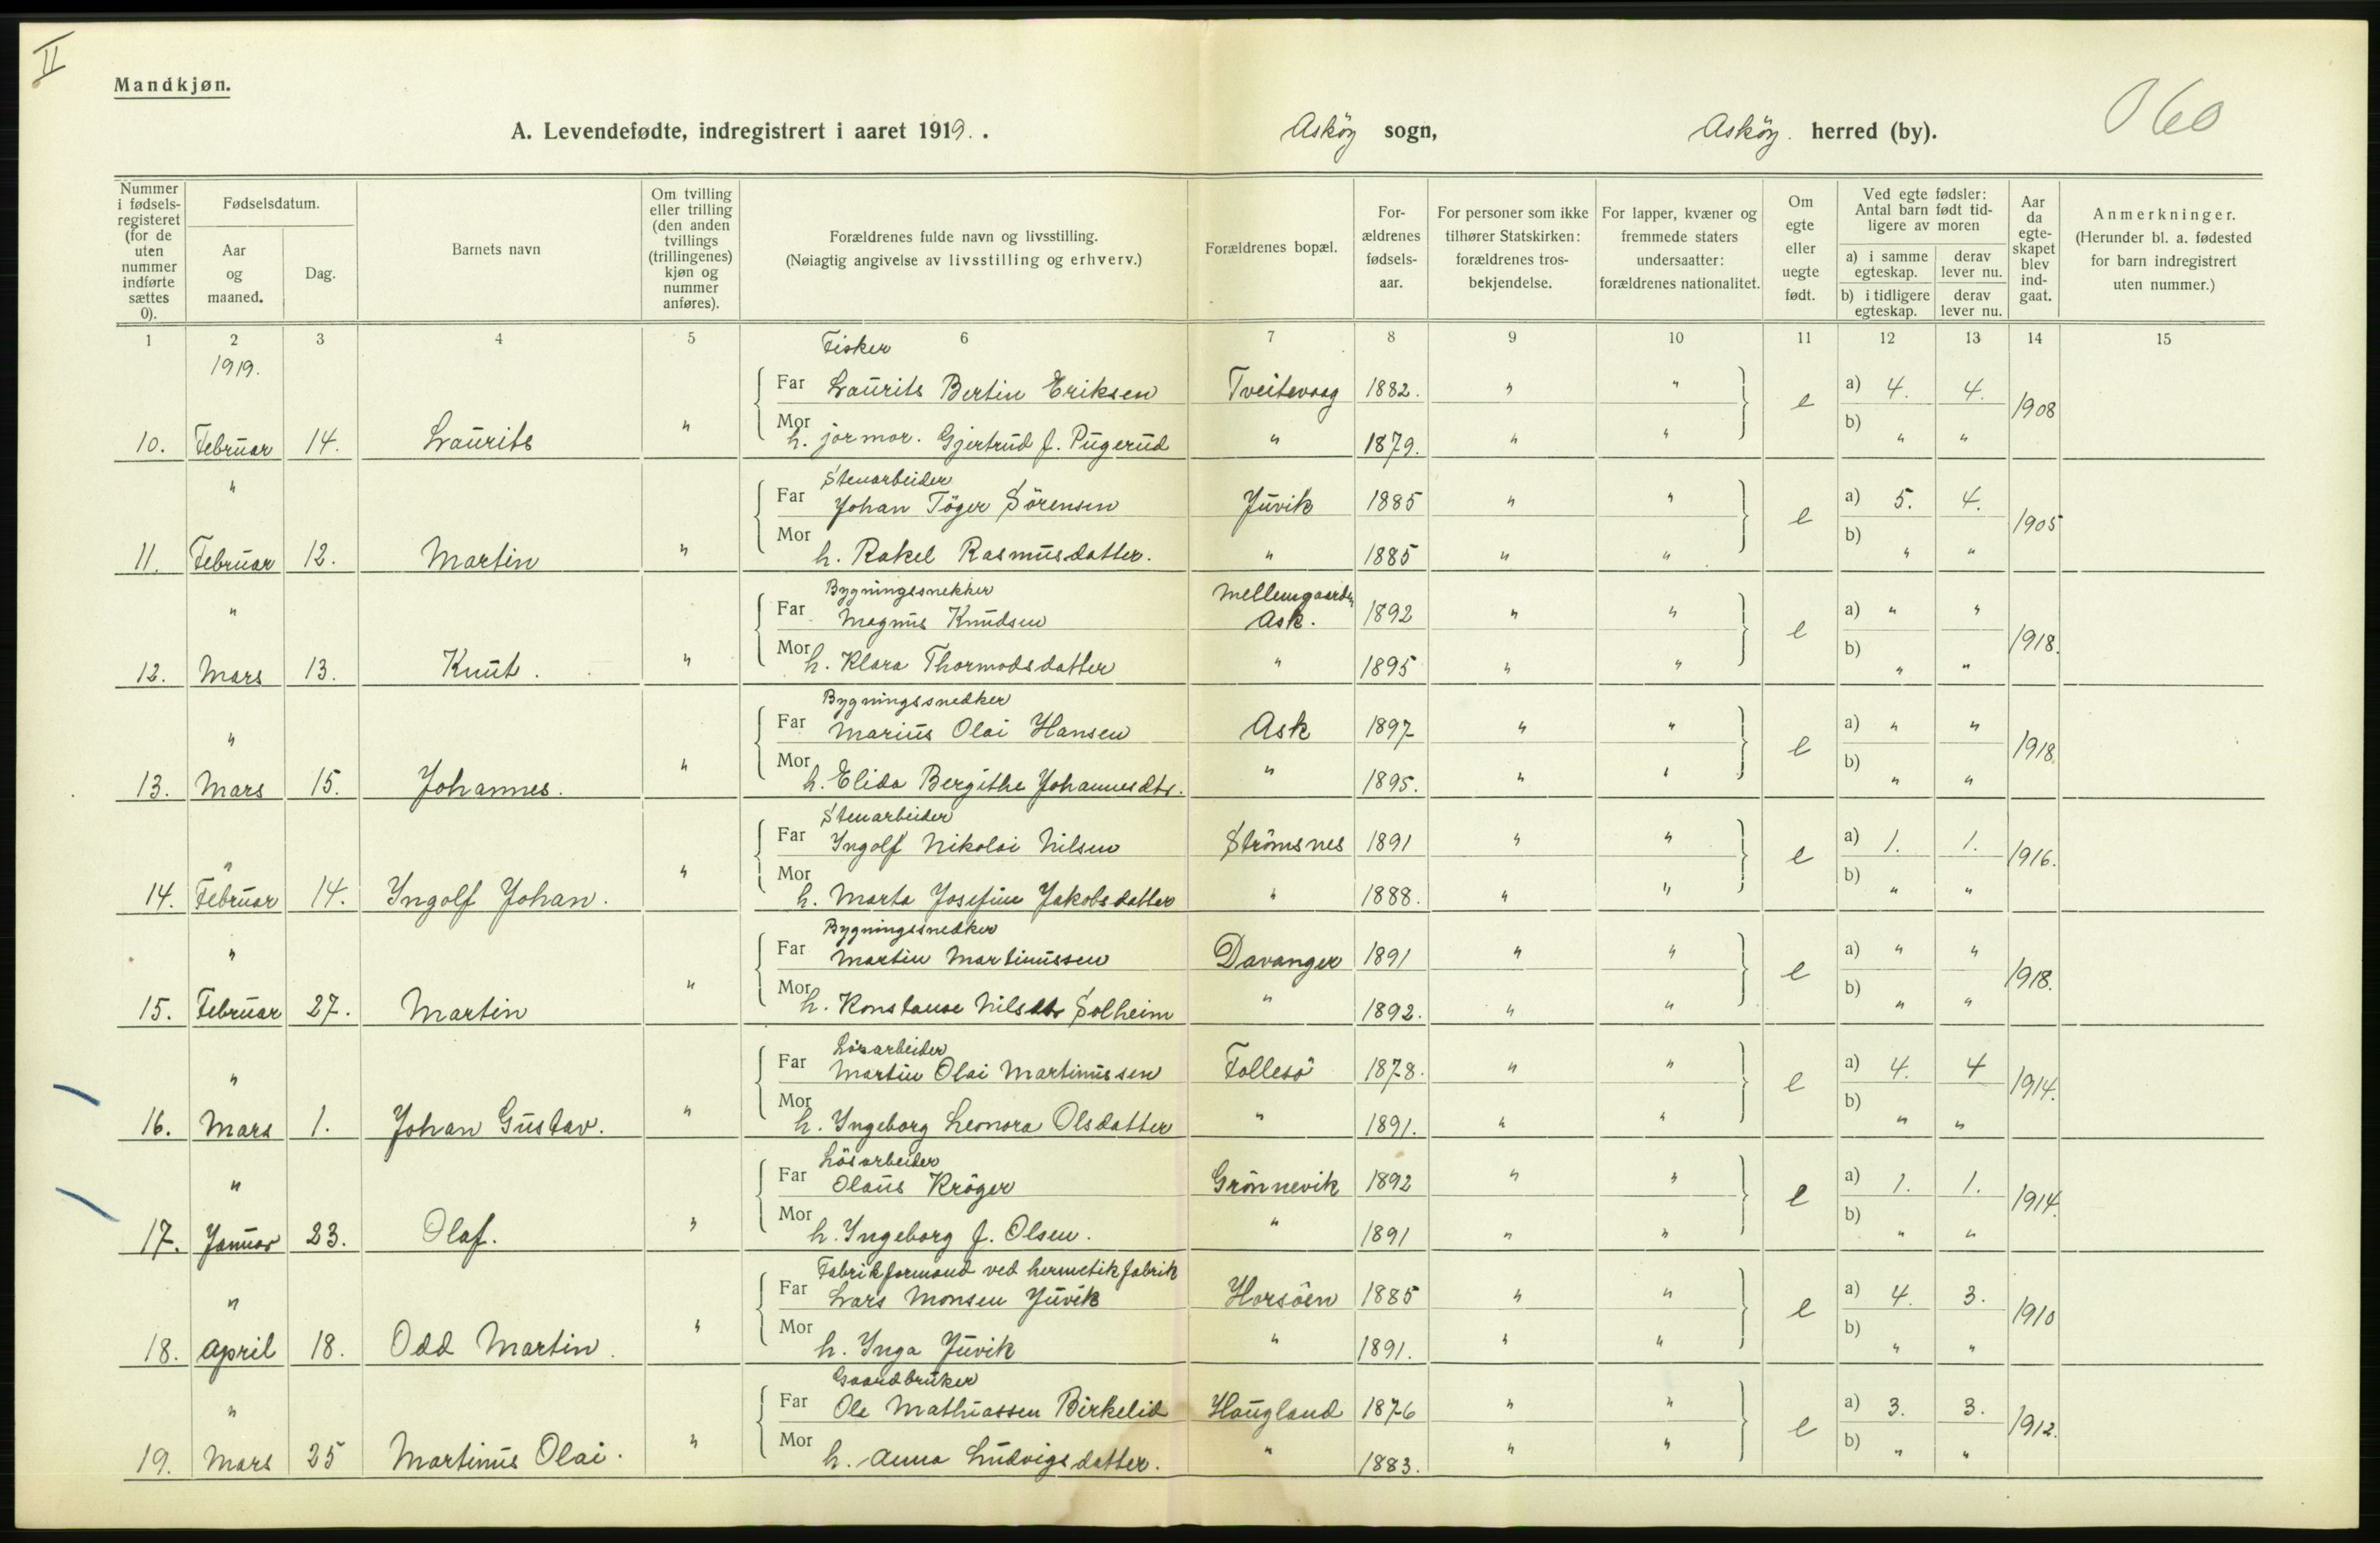 II
Mandkjøn.
A. Levendefødte, indregistrert i aaret 1919. . Askøy sogn, Askøy. herred (by).
060
Nummer i fødsels-registeret (for de uten nummer indførte sættes 0).
Fødselsdatum.
Aar og maaned.
Dag.
Barnets navn
Om tvilling eller trilling (den anden tvillings (trillingenes) kjøn og nummer anføres).
Forældrenes fulde navn og livsstilling. (Nøiagtig angivelse av livsstilling og erhverv.)
Forældrenes bopæl.
For-ældrenes fødsels-aar.
For personer som ikke tilhører Statskirken: forældrenes tros-bekjendelse.
For lapper, kvæner og fremmede staters undersaatter: forældrenes nationalitet.
Om egte eller uegte født.
Ved egte fødsler: Antal barn født tid-ligere av moren
a) i samme egteskap.
derav lever nu.
b) i tidligere egteskap.
derav lever nu.
Aar da egte-skapet blev ind-gaat.
Anmerkninger. (Herunder bl. a. fødested for barn indregistrert uten nummer.)
1 2 3 4 5 6 7 8 9 10 11 12 13 14 15
1919.
Fisker
Far Laurits Bertin Eriksen Tveitevaag 1882. " " e a) 4. 4. 1908
10. Februar 14. Laurits " Mor h. jormor. Gjertrud f. Pugerud " 1879. " " b) " "
" Stenarbeider
Far Johan Töger Sörensen Juvik 1885 " " e a) 5. 4. 1905
11. Februar 12. Martin " Mor h. Rakel Rasmusdatter. " 1885 " " b) " "
" Bygningssnekker Mellemgaarden
Far Magnus Knudsen Ask. 1892 " " e a) " " 1918.
12. Mars 13. Knut. " Mor h. Klara Thormodsdatter " 1895 " " b) " "
Bygningssnedker
" Far Marius Olai Hansen Ask 1897 " " e a) " " 1918.
13. Mars 15. Johannes. " Mor h. Elida Bergithe Johannesdtr. " 1895. " " b) " "
Stenarbeider
" Far Ingolf Nikolai Nilsen Strömsnes 1891 " " e a) 1. 1. 1916.
14. Februar 14. Ingolf Johan. " Mor h. Marta Josefine Jakobsdatter " 1888. " " b) " "
Bygningssnedker
" Far Martin Martinussen Davanger 1891 " " e a) " " 1918.
15. Februar 27. Martin " Mor h. Konstanse Nilsdtr Solheim " 1892. " " b) " "
Lösarbeider
" Far Martin Olai Martinussen Follesö 1878. " " e a) 4. 4 1914.
16. Mars 1. Johan Gustav. " Mor h. Ingeborg Leonora Olsdatter " 1891. " " b) " "
Lösarbeider
" Far Olaus Kröger Grönnevik 1892 " " e a) 1. 1. 1914.
17. Januar 23. Olaf. " Mor h. Ingeborg f. Olsen. " 1891 " " b) " "
Fabrikformand ved hermetikfabrik
" Far Lars Monsen Juvik Horsöen 1885 " " e a) 4. 3. 1910
18. April 18. Odd Martin. " Mor h. Inga Juvik " 1891. " " b) " "
Gaardbruker
" Far Ole Mathiassen Birkelid Haugland 1876 " " e a) 3. 3. 1912.
19. Mars 25 Martinus Olai. " Mor h. Anna Ludvigsdatter. " 1883. " " b) " "